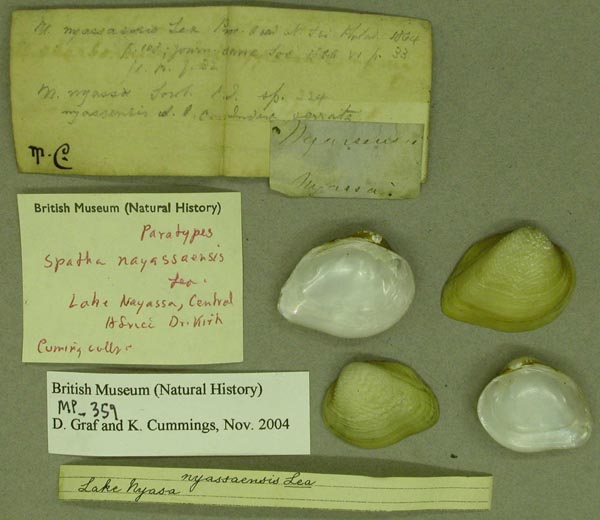 M. nyassaensis Lea Proc. Acad. N. Sci. Philad. 1864
Journ. Conch. 1866 VI p. 33
M. nyassa Sowb. sp. 224
nyassensis
M.C.
Nyassensis
Nyassa.
British Museum (Natural History)
Paratypes
Spatha nayassaensis
Lea.
Lake Nayassa, Central
Africi Dr. Kirk
Cuming colln.
British Museum (Natural History)
MP-359
D. Graf and K. Cummings, Nov. 2004
nyassaensis Lea
Lake Nyasa